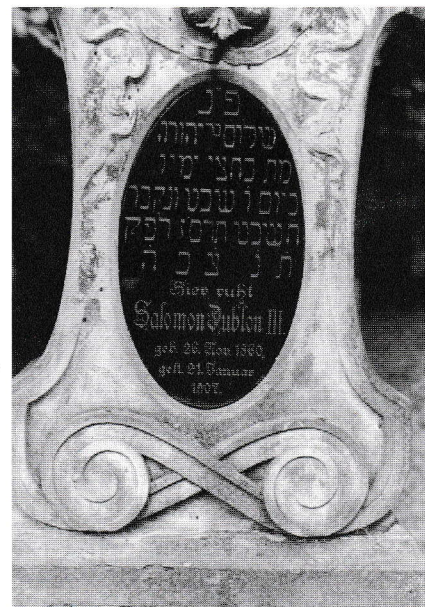 פ״נ
שלום יהודה
מת בחצי ימיו
ביום ו׳ שבט ונקבר
שבט תרס״ז לפק
ת נ צ ב ה
Hier ruht
Salomon Dublon III.
geb. 26. Nov. 1860,
gest. 21. Januar
1907.